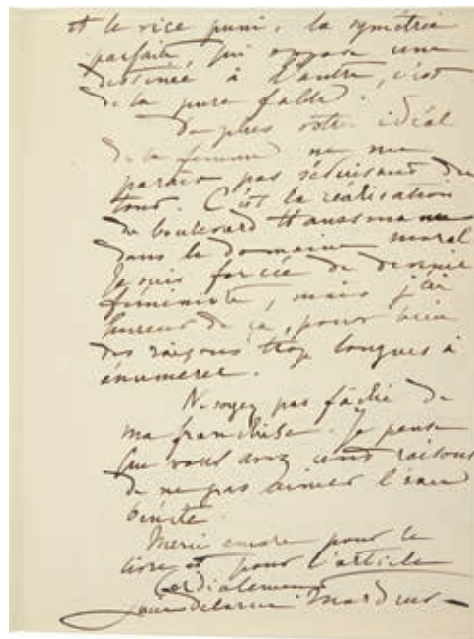 et le vice puni, la symétrie
parfaite, qui oppose une
destinée à l'autre, c'est
de la pure fable.
De plus votre idéal
de la femme ne me
paraît pas séduisant du
tout. C'est la réalisation
du boulevard Haussmann
dans le domaine moral
Je suis forcée de devenir
féministe, mais j'ai
horreur de ça, pour bien
des raisons trop longues à
énumérer.
N. soyez pas fâché de
ma franchise. Je pense
que vous avez cent raisons
de ne pas aimer l'eau
bénite.
Merci encore pour le
livre et pour l'article
Cordialement
Lucie Delarue-Mardrus